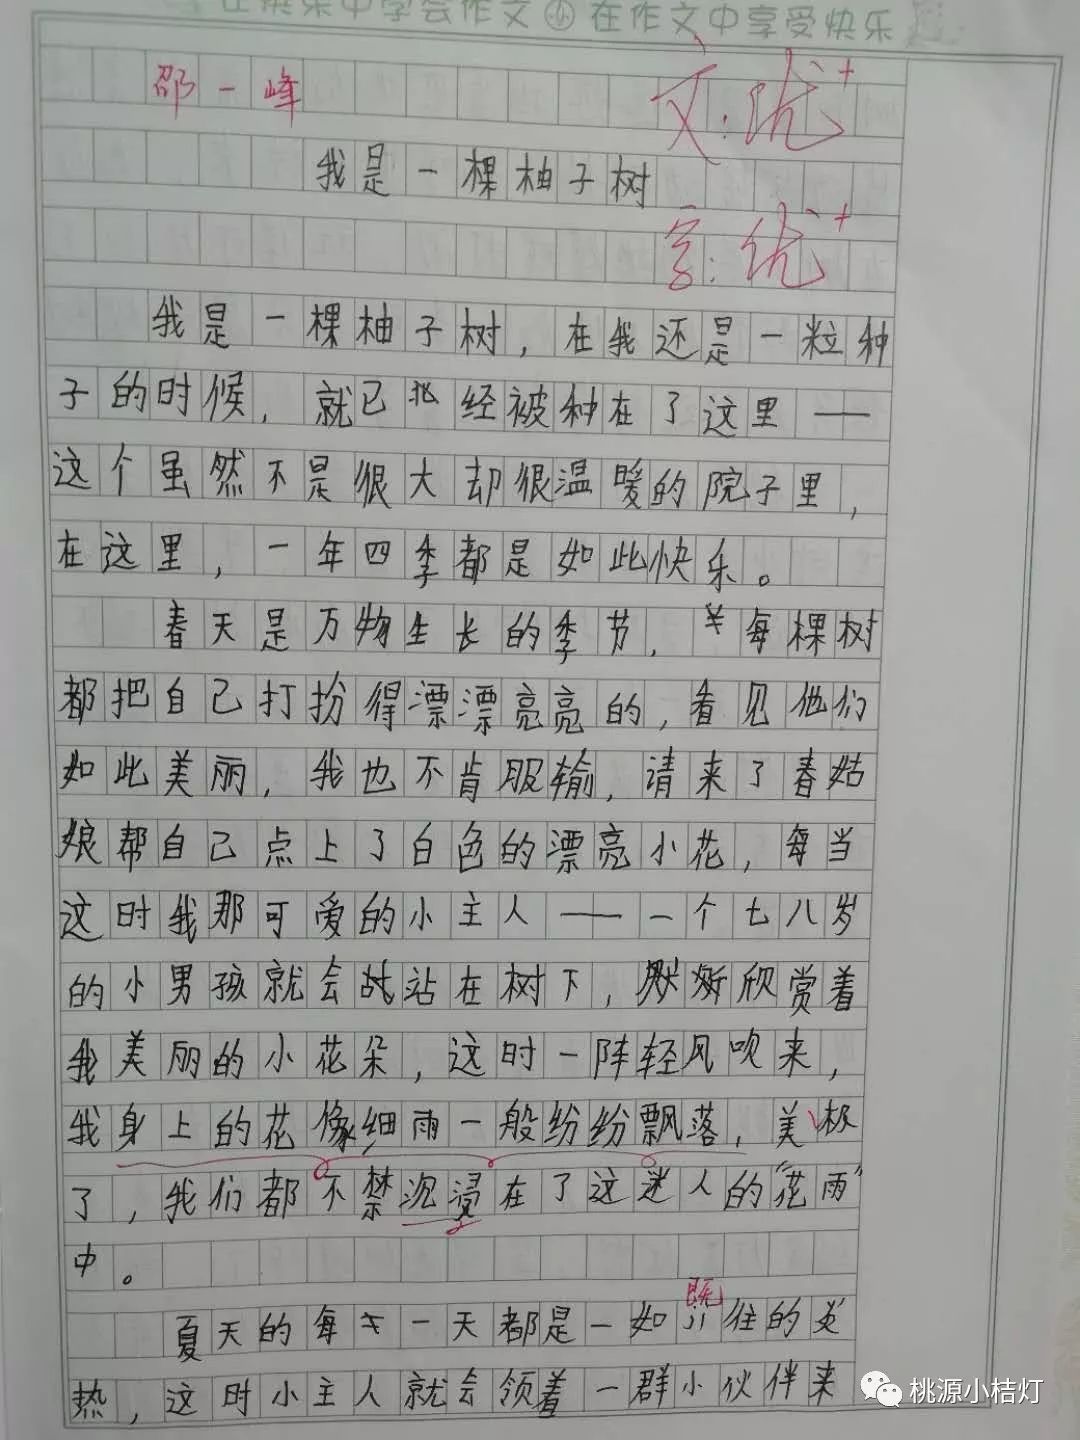 在快乐中学会作文 在作文中享受快乐
邵一峰
文:优+
我是一棵柚子树
字:优+
我是一棵柚子树，在我还是一粒种
子的时候，就已经被种在了这里——
这个虽然不是很大却很温暖的院子里，
在这里，一年四季都是如此快乐。
春天是万物生长的季节，每棵树
都把自己打扮得漂漂亮亮的，看见他们
如此美丽，我也不肯服输，请来了春姑
娘帮自己点上了白色的漂亮小花，每当
这时我那可爱的小主人——一个七八岁
的小男孩就会站在树下，欣赏着
我美丽的小花朵，这时一阵轻风吹来，
我身上的花像细雨一般纷纷飘落，美极
了，我们都不禁沉浸在了这迷人的“花雨”
中。
夏天的每一天都是一如既往的炎
热，这时小主人就会领着一群小伙伴来
桃源小桔灯